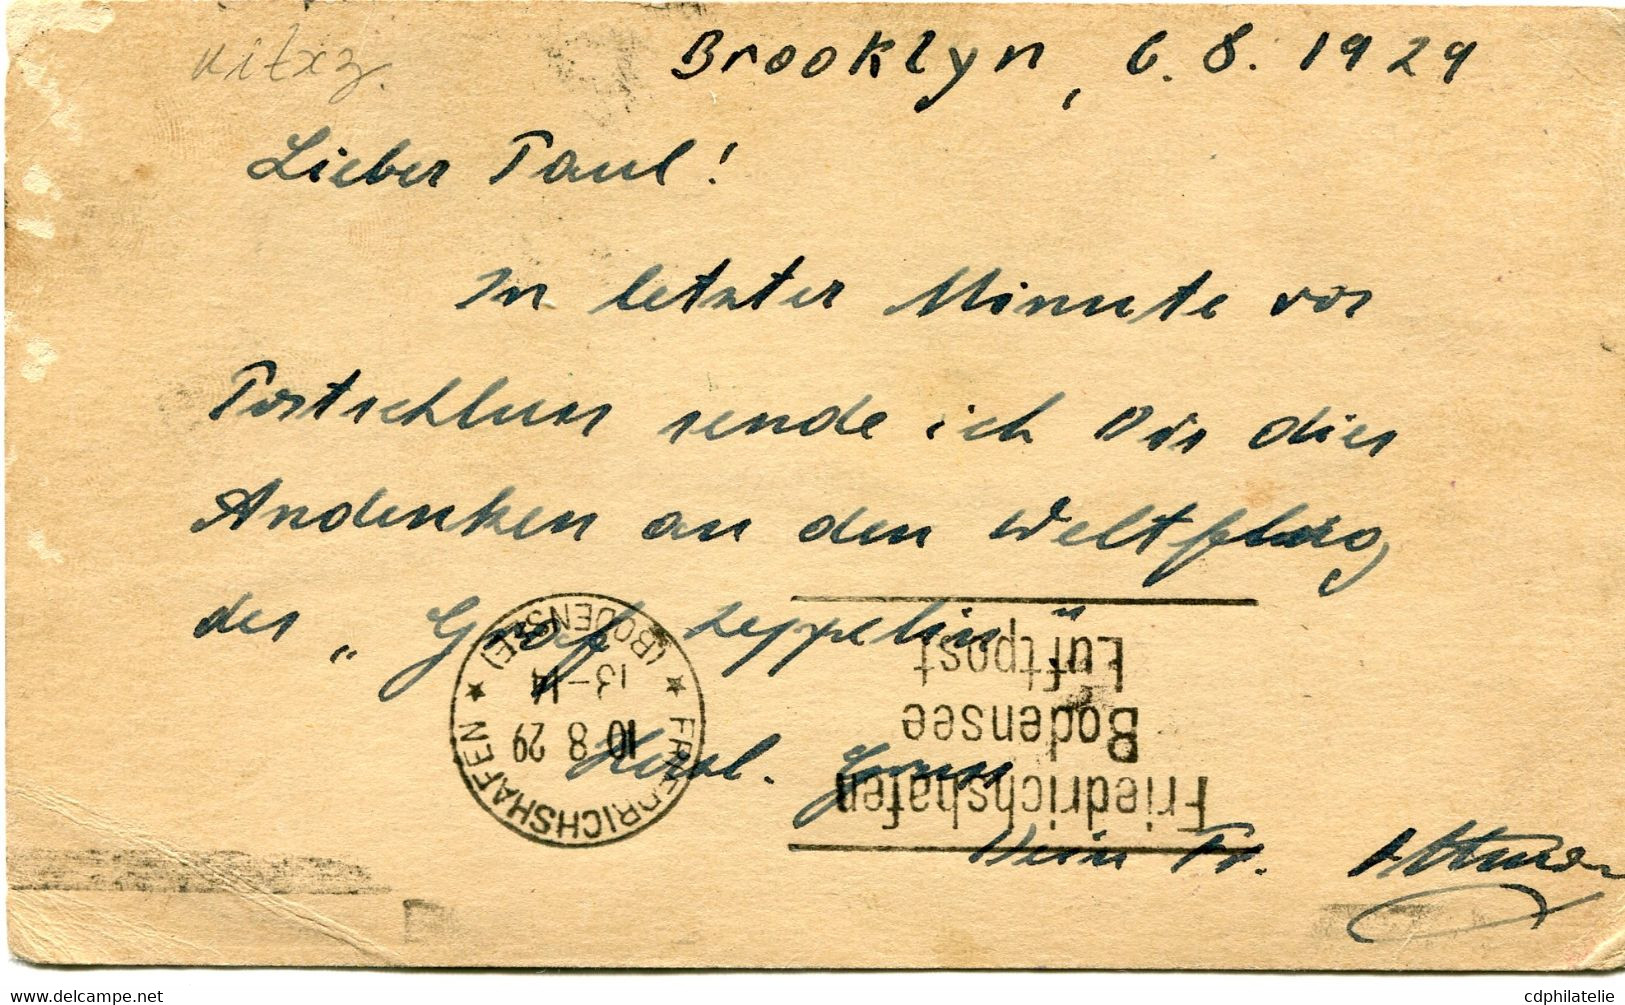 uitxz
Brooklyn, 6. 8. 1929
Lieber Paul!
In letzter Minute vor
Postschluss sende ich Dir dies
Andenken an den Weltflug
des „Graf Zeppelin“
Herzl. Gruss
Dein Fr.
FRIEDRICHSHAFEN
(BODENSEE)
10 8 29
13-14
Friedrichshafen
Bodensee
Luftpost
cdphilatelie